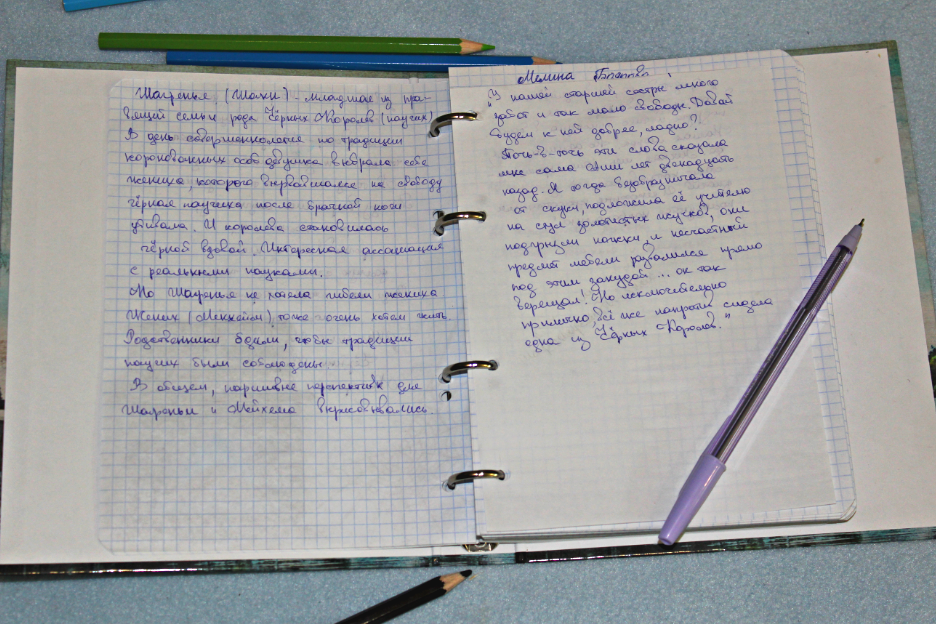 Шаренья (Шахи) - младшая из пра-
вящей семьи рода Чёрных Королев (паучих)
В день совершеннолетия по традиции
коронованных особ девушка выбрала себе
жениха, которого вырвавшаяся на свободу
чёрная паучиха после брачной ночи
убивала. И королева становилась
чёрной вдовой. Интересная ассоциация
с реальными пауками.
Но Шаренья не хотела гибели жениха
Жених (Мейхейм) тоже очень хотел жить.
Родственники бдили, чтобы традиции
паучих были соблюдены.
В общем, паршивые перспективы для
Шареньи и Мейхема вырисовывались.
Мелина
"У нашей старшей сестры много
забот и так мало свободы. Давай
будем к ней добрее, ладно?
Точь-в-точь эти слова сказала
мне сама Оэши лет двенадцать
назад. Я тогда безобразничала
от скуки, подложила её учителю
на стул золотистых жучков, они
подгрызли ножки, и несчастный
предмет мебели развалился прямо
под этим занудой... ох так
верещал! Но исключительно
прилично, всё же напротив сидела
одна из Чёрных Королев."